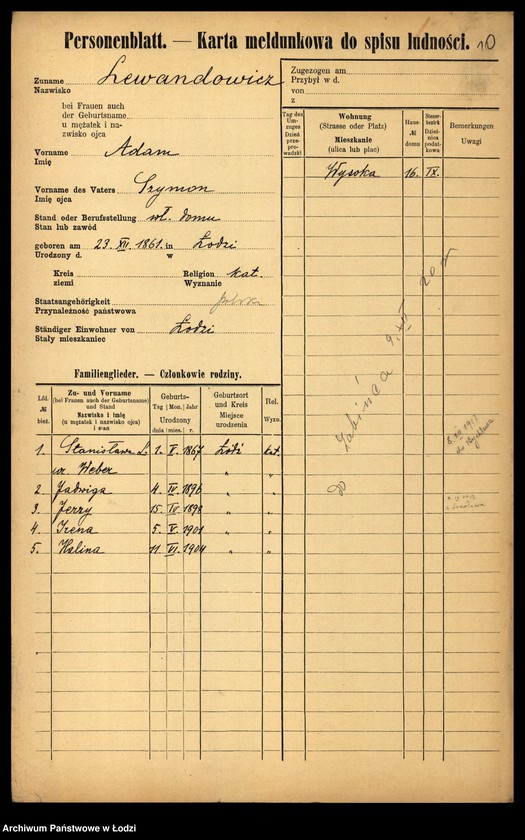 Personenblatt. — Karta meldunkowa do spisu ludności. 10
Zuname Lewandowicz
Nazwisko
bei Frauen auch
der Geburtsname
u mężatek i na-
zwisko ojca
Vorname Adam
Imię
Vorname des Vaters Szymon
Imię ojca
Stand oder Berufsstellung wł. domu
Stan lub zawód
geboren am 23. XII. 1861. in Łodzi
Urodzony d. w
Kreis Religion kat.
ziemi Wyznanie
Staatsangehörigkeit polska
Przynależność państwowa
Ständiger Einwohner von Łodzi
Stały mieszkaniec
Zugezogen am
Przybył w d.
von
z
Tag des Um-zuges Dzień prze-prowadzki
Wohnung
(Strasse oder Platz)
Mieszkanie
(ulica lub plac)
Haus-
№
domu
Steuer-bezirk Dziel-nica podat-kowa
Bemerkungen
Uwagi
Wysoka 16. IX.
Familienglieder. — Członkowie rodziny.
Lfd.
№
bież.
Zu- und Vorname
(bei Frauen auch der Geburtsname)
und Stand
Nazwisko i imię
(u mężatek i nazwisko ojca)
i stan
Geburts-
Tag Mon. Jahr
Urodzony
dnia mies. r.
Geburtsort
und Kreis
Miejsce
urodzenia
Rel.
Wyzn.
1. Stanisława L. 1. V. 1867 Łódź kat.
ur. Weber " "
2. Jadwiga 4. IV. 1896 " "
3. Jerzy 15. IV 1898 " "
4. Irena 5. V. 1901 " "
5. Halina 11. VI. 1904 " "
Archiwum Państwowe w Łodzi